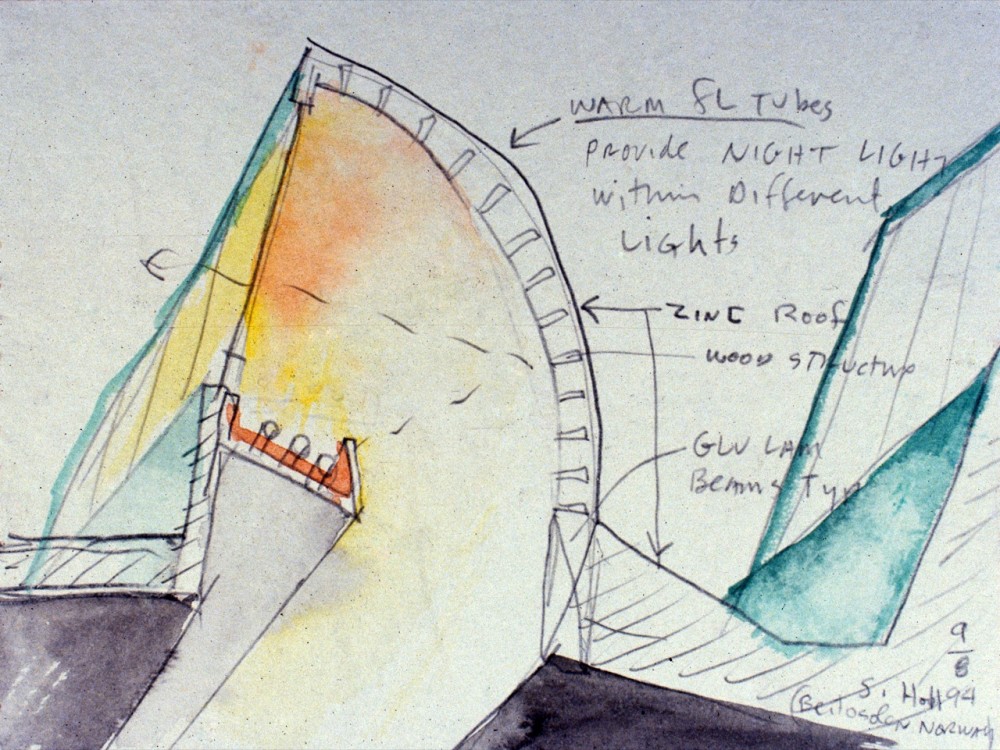 WARM FL TUBES
PROVIDE NIGHT LIGHT
within Different
LIGHTS
ZINC ROOF
WOOD STRUCTURE
GLU LAM
BEAMS TYP
9/8
S. Holl 94
NORWAY